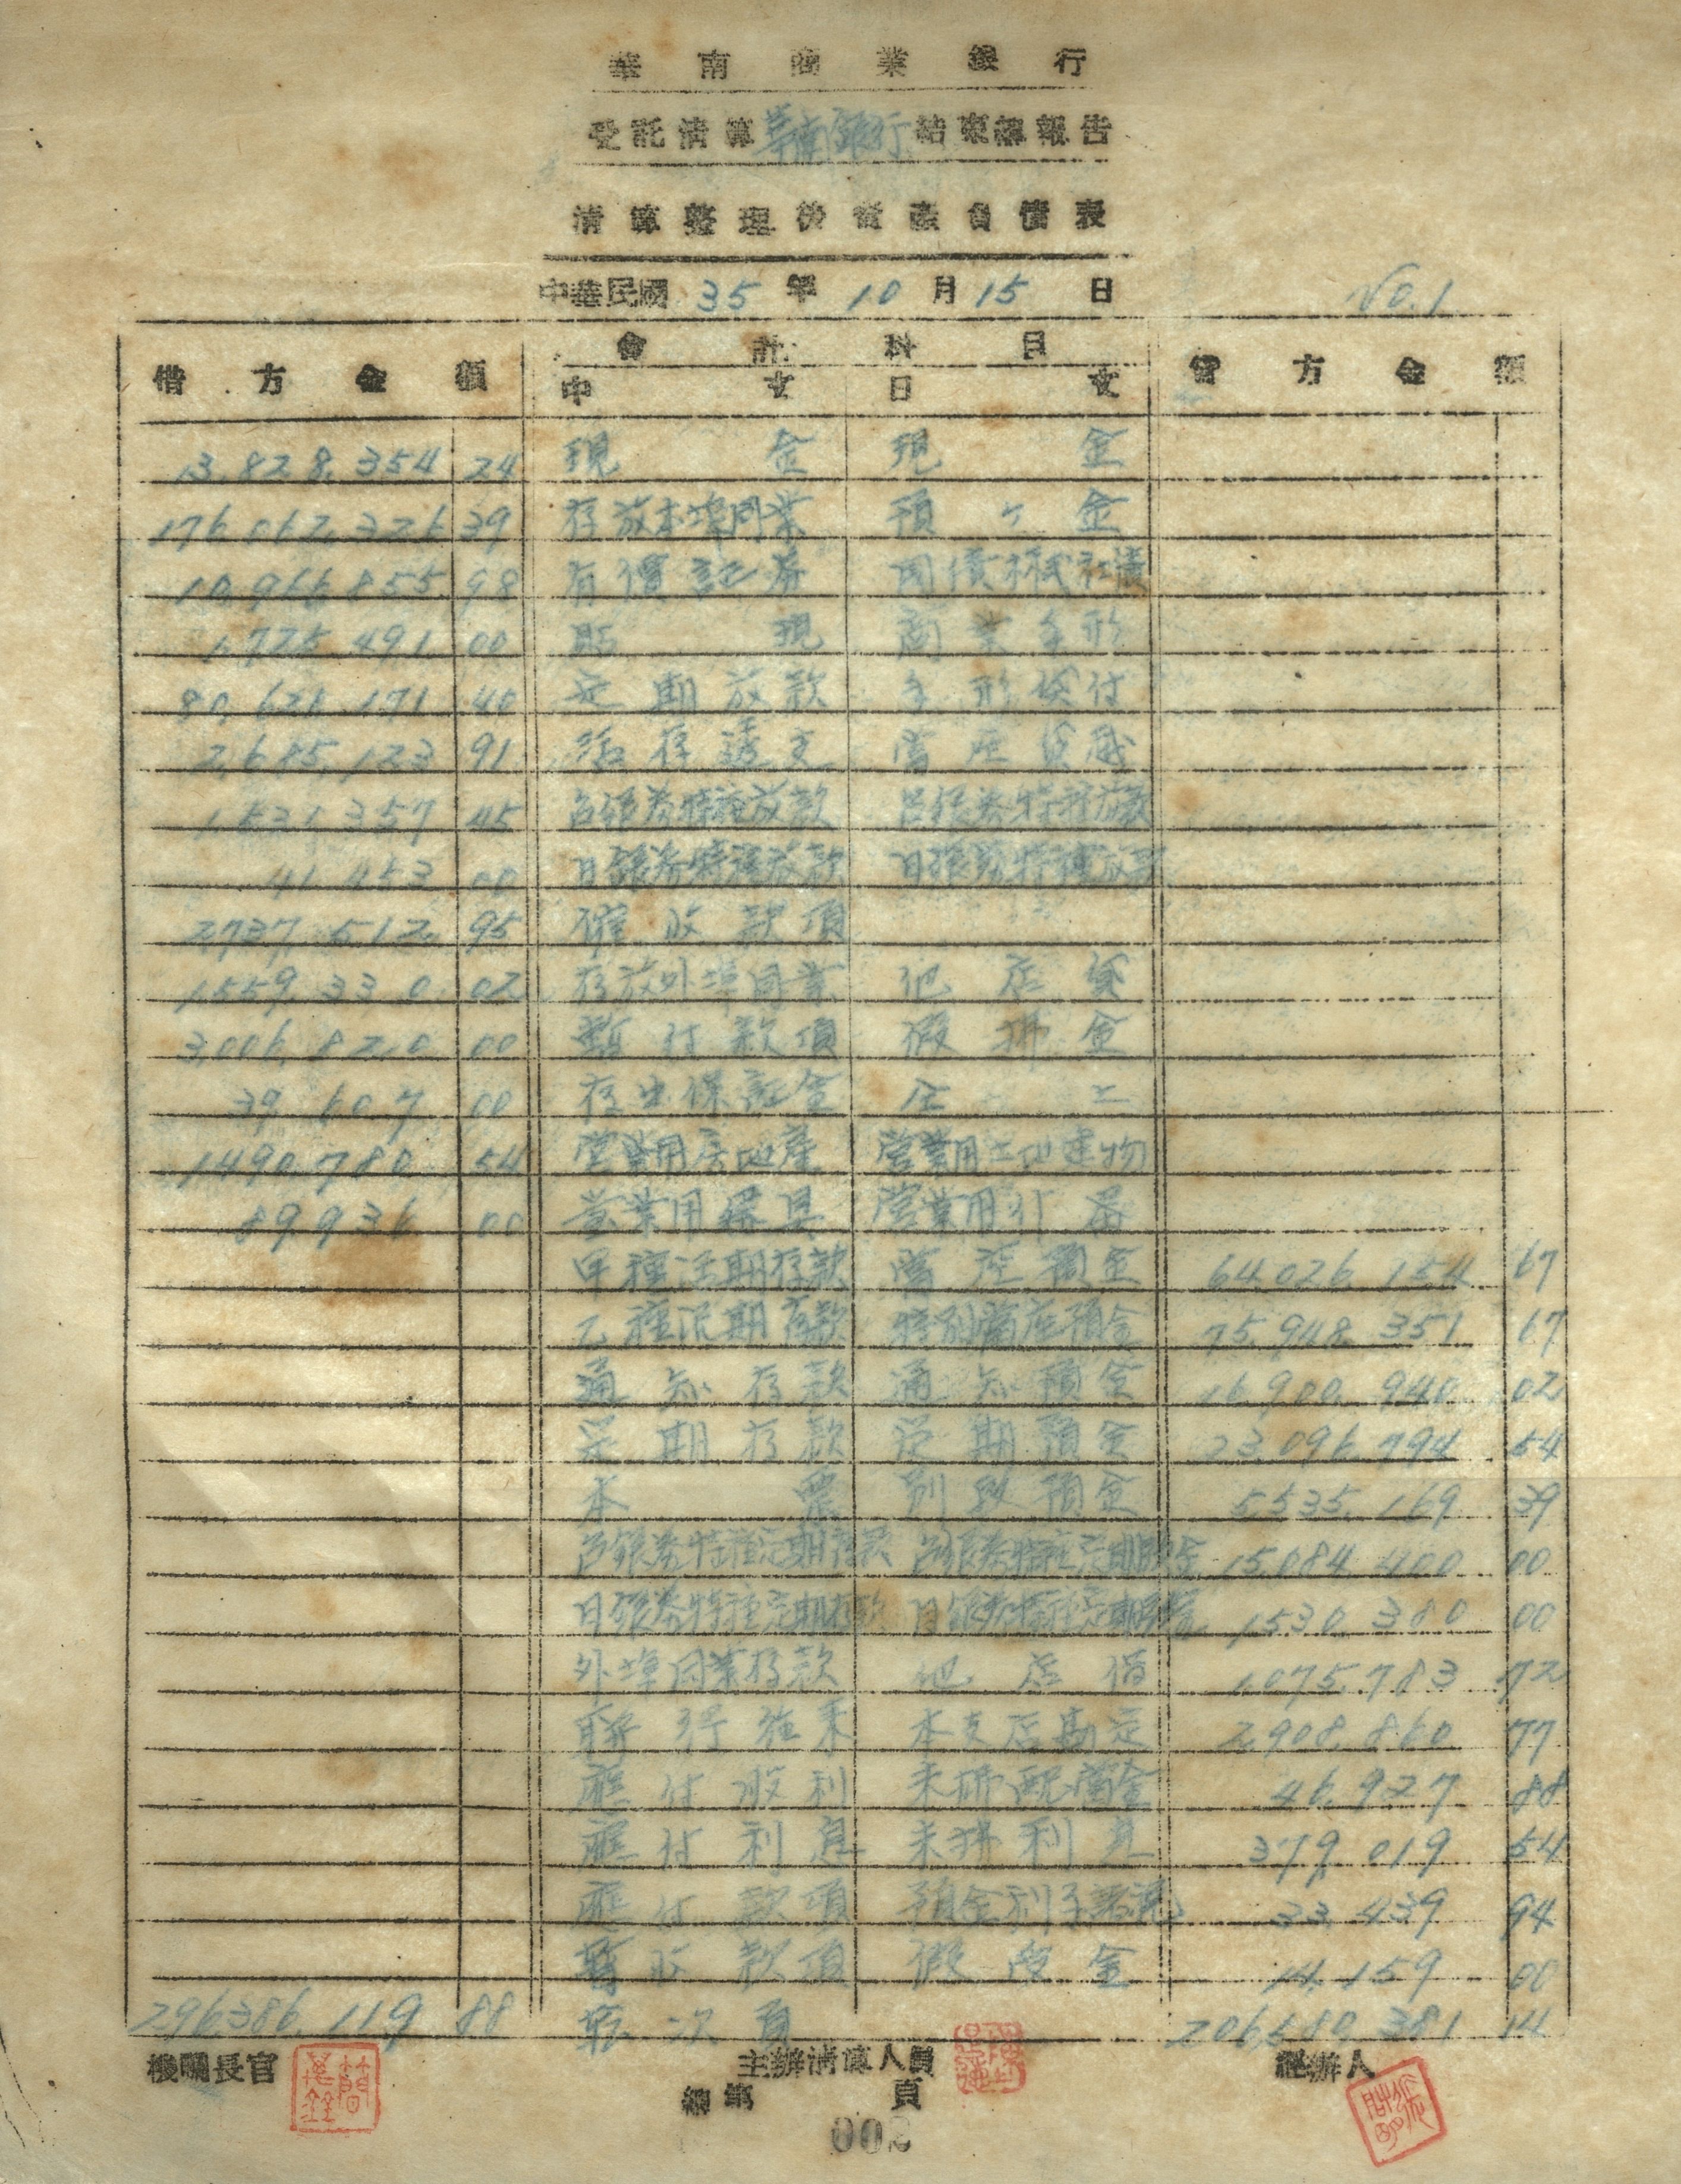 華南商業銀行
受託清算華南銀行結束總報告
清算整理後資產負債表
中華民國 35 年 10 月 15 日 No.1
借方金額 會計科目 貸方金額
中文 日文
13,828,354 24 現金 現金
176,062,326 39 存放本埠同業 預ケ金
10,966,855 98 有價証券 国債株式社債
1,725,491 00 貼現 商業手形
80,626,171 40 定期放款 手形貸付
2,685,123 91 活存透支 當座貸越
1,531,357 45 台銀券特種放款 台銀券特種放款
41,453 00 日銀券特種放款 日銀券特種放款
2,737,512 95 催收款項
1,559,330 02 存放外埠同業 他店貸
3,006,820 00 暫付款項 假拂金
39,607 00 存出保証金 仝上
1,490,780 54 營業用房地產 營業用土地建物
89,936 00 營業用器具 營業用什器
甲種活期存款 當座預金 64,026,154 67
乙種活期存款 特別當座預金 75,948,351 67
通知存款 通知預金 16,900,940 02
定期存款 定期預金 23,096,794 54
本票 別段預金 5,535,169 39
台銀券特種定期存款 台銀券特種定期預金 15,084,400 00
日銀券特種定期存款 日銀券特種定期預金 1,530,380 00
外埠同業存款 他店借 1,075,783 72
聯行往來 本支店勘定 2,908,860 77
應付股利 未拂配當金 46,927 88
應付利息 未拂利息 379,019 54
應付款項 預金利子諸税 33,439 94
暫收款項 假受金 14,159 00
296,386,119 88 轉次頁 206,580,381 14
機關長官 主辦清算人員 經辦人
總第 頁
002